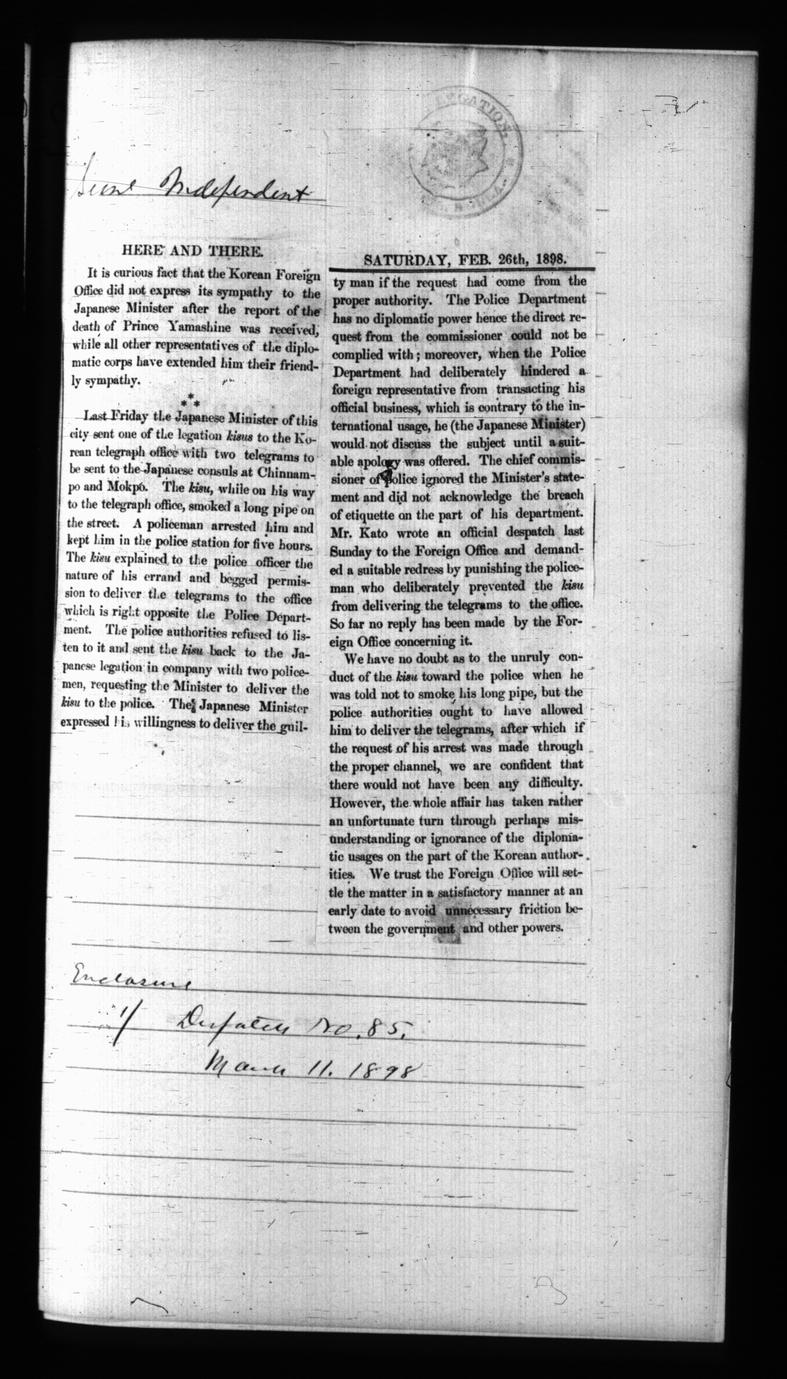 Independent
HERE AND THERE.
It is curious fact that the Korean Foreign
Office did not express its sympathy to the
Japanese Minister after the report of the
death of Prince Yamashine was received,
while all other representatives of the diplo-
matic corps have extended him their friend-
ly sympathy.
***
Last Friday the Japanese Minister of this
city sent one of the legation kisus to the Ko-
rean telegraph office with two telegrams to
be sent to the Japanese consuls at Chinnam-
po and Mokpo. The kisu, while on his way
to the telegraph office, smoked a long pipe on
the street. A policeman arrested him and
kept him in the police station for five hours.
The kisu explained to the police officer the
nature of his errand and begged permis-
sion to deliver the telegrams to the office
which is right opposite the Police Depart-
ment. The police authorities refused to lis-
ten to it and sent the kisu back to the Ja-
panese legation in company with two police-
men, requesting the Minister to deliver the
kisu to the police. The Japanese Minister
expressed his willingness to deliver the guil-
SATURDAY, FEB. 26th, 1898.
ty man if the request had come from the
proper authority. The Police Department
has no diplomatic power hence the direct re-
quest from the commissioner could not be
complied with; moreover, when the Police
Department had deliberately hindered a
foreign representative from transacting his
official business, which is contrary to the in-
ternational usage, he (the Japanese Minister)
would not discuss the subject until a suit-
able apology was offered. The chief commis-
sioner of police ignored the Minister's state-
ment and did not acknowledge the breach
of etiquette on the part of his department.
Mr. Kato wrote an official despatch last
Sunday to the Foreign Office and demand-
ed a suitable redress by punishing the police-
man who deliberately prevented the kisu
from delivering the telegrams to the office.
So far no reply has been made by the For-
eign Office concerning it.
We have no doubt as to the unruly con-
duct of the kisu toward the police when he
was told not to smoke his long pipe, but the
police authorities ought to have allowed
him to deliver the telegrams, after which if
the request of his arrest was made through
the proper channel, we are confident that
there would not have been any difficulty.
However, the whole affair has taken rather
an unfortunate turn through perhaps mis-
understanding or ignorance of the diploma-
tic usages on the part of the Korean author-
ities. We trust the Foreign Office will set-
tle the matter in a satisfactory manner at an
early date to avoid unnecessary friction be-
tween the government and other powers.
Enclosure
1/ Dispatch No. 85.
March 11. 1898